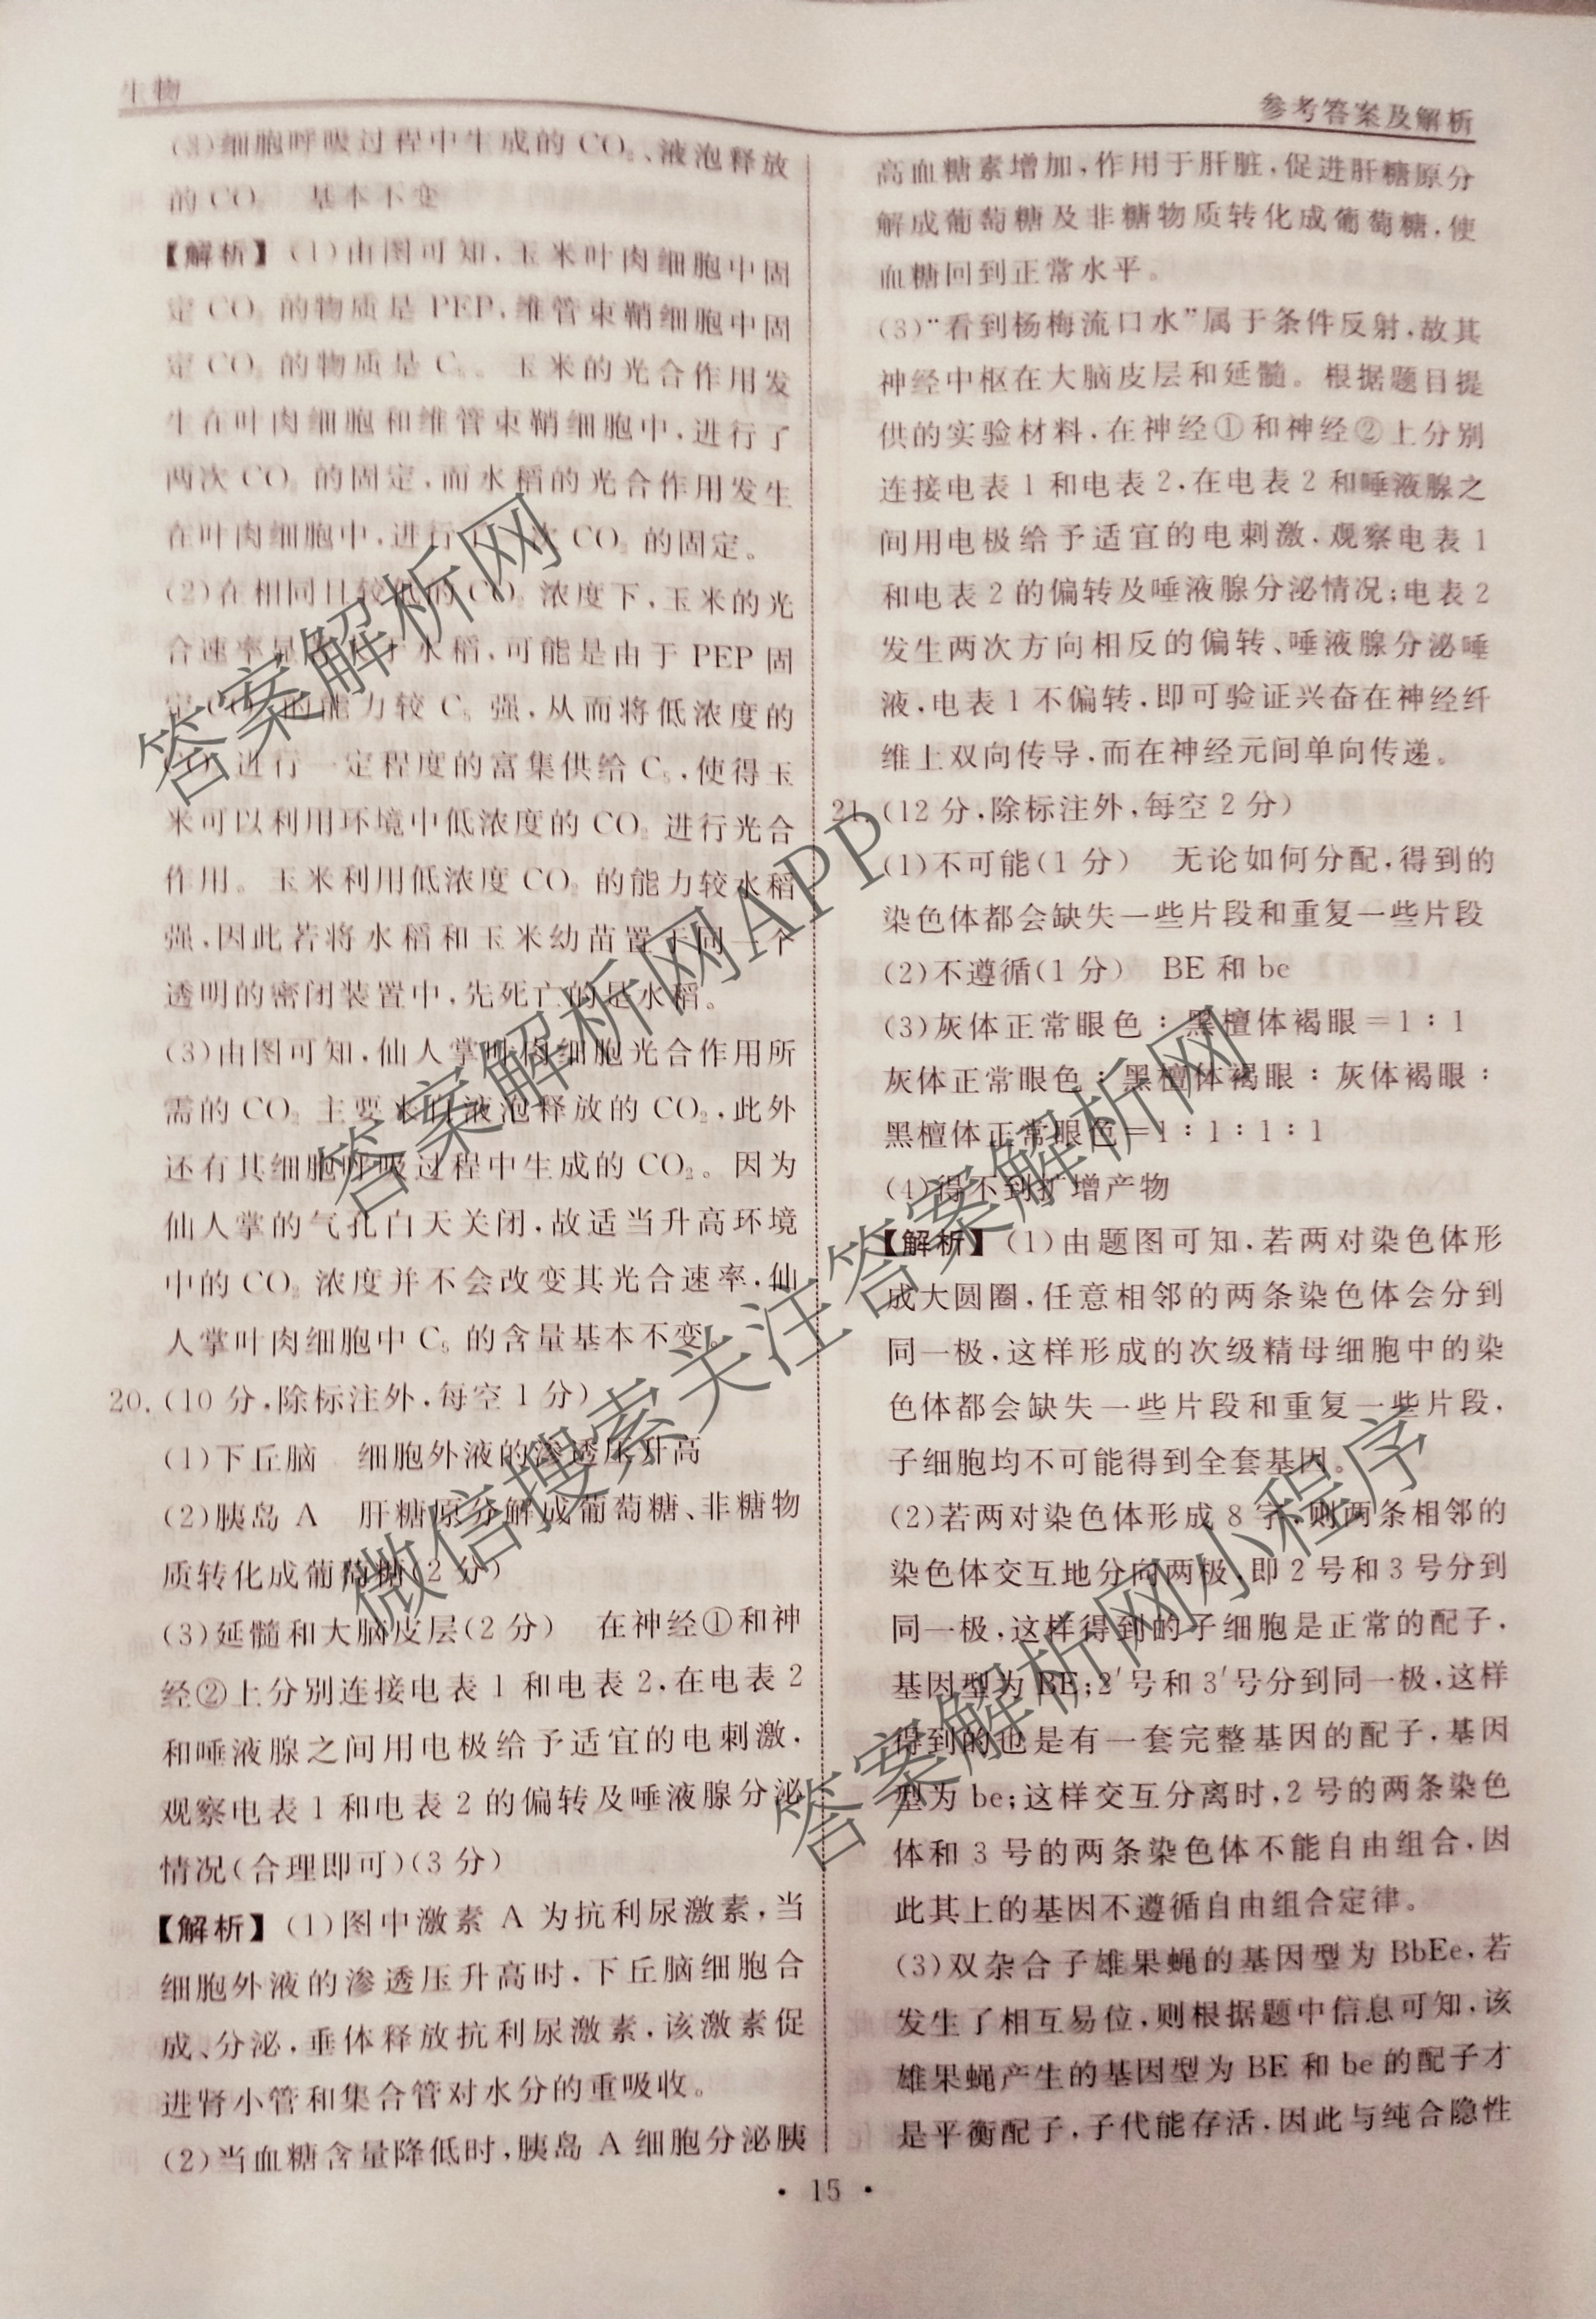 生物
参考答案及解析
(3)细胞呼吸过程中生成的CO₂、液泡释放
的CO₂　基本不变
【解析】(1)由图可知,玉米叶肉细胞中固
定CO₂的物质是PEP,维管束鞘细胞中固
定CO₂的物质是C₅。玉米的光合作用发
生在叶肉细胞和维管束鞘细胞中,进行了
两次CO₂的固定,而水稻的光合作用发生
在叶肉细胞中,进行了一次CO₂的固定。
(2)在相同且较低的CO₂浓度下,玉米的光
合速率显著大于水稻,可能是由于PEP固
定CO₂的能力较C₅强,从而将低浓度的
CO₂进行一定程度的富集供给C₅,使得玉
米可以利用环境中低浓度的CO₂进行光合
作用。玉米利用低浓度CO₂的能力较水稻
强,因此若将水稻和玉米幼苗置于同一个
透明的密闭装置中,先死亡的是水稻。
(3)由图可知,仙人掌叶肉细胞光合作用所
需的CO₂主要来自液泡释放的CO₂,此外
还有其细胞呼吸过程中生成的CO₂。因为
仙人掌的气孔白天关闭,故适当升高环境
中的CO₂浓度并不会改变其光合速率,仙
人掌叶肉细胞中C₅的含量基本不变。
20.(10分,除标注外,每空1分)
(1)下丘脑　细胞外液的渗透压升高
(2)胰岛A　肝糖原分解成葡萄糖、非糖物
质转化成葡萄糖(2分)
(3)延髓和大脑皮层(2分)　在神经①和神
经②上分别连接电表1和电表2,在电表2
和唾液腺之间用电极给予适宜的电刺激,
观察电表1和电表2的偏转及唾液腺分泌
情况(合理即可)(3分)
【解析】(1)图中激素A为抗利尿激素,当
细胞外液的渗透压升高时,下丘脑细胞合
成、分泌,垂体释放抗利尿激素,该激素促
进肾小管和集合管对水分的重吸收。
(2)当血糖含量降低时,胰岛A细胞分泌胰
高血糖素增加,作用于肝脏,促进肝糖原分
解成葡萄糖及非糖物质转化成葡萄糖,使
血糖回到正常水平。
(3)“看到杨梅流口水”属于条件反射,故其
神经中枢在大脑皮层和延髓。根据题目提
供的实验材料,在神经①和神经②上分别
连接电表1和电表2,在电表2和唾液腺之
间用电极给予适宜的电刺激,观察电表1
和电表2的偏转及唾液腺分泌情况;电表2
发生两次方向相反的偏转、唾液腺分泌唾
液,电表1不偏转,即可验证兴奋在神经纤
维上双向传导,而在神经元间单向传递。
21.(12分,除标注外,每空2分)
(1)不可能(1分)　无论如何分配,得到的
染色体都会缺失一些片段和重复一些片段
(2)不遵循(1分)　BE和be
(3)灰体正常眼色∶黑檀体褐眼=1∶1
灰体正常眼色∶黑檀体褐眼∶灰体褐眼∶
黑檀体正常眼色=1∶1∶1∶1
(4)得不到扩增产物
【解析】(1)由题图可知,若两对染色体形
成大圆圈,任意相邻的两条染色体会分到
同一极,这样形成的次级精母细胞中的染
色体都会缺失一些片段和重复一些片段,
子细胞均不可能得到全套基因。
(2)若两对染色体形成8字,则两条相邻的
染色体交互地分向两极,即2号和3号分到
同一极,这样得到的子细胞是正常的配子,
基因型为BE;2′号和3′号分到同一极,这样
得到的也是有一套完整基因的配子,基因
型为be;这样交互分离时,2号的两条染色
体和3号的两条染色体不能自由组合,因
此其上的基因不遵循自由组合定律。
(3)双杂合子雄果蝇的基因型为BbEe,若
发生了相互易位,则根据题中信息可知,该
雄果蝇产生的基因型为BE和be的配子才
是平衡配子,子代能存活,因此与纯合隐性
• 15 •
答案解析网
答案解析网APP
微信搜索关注答案解析网
答案解析网小程序